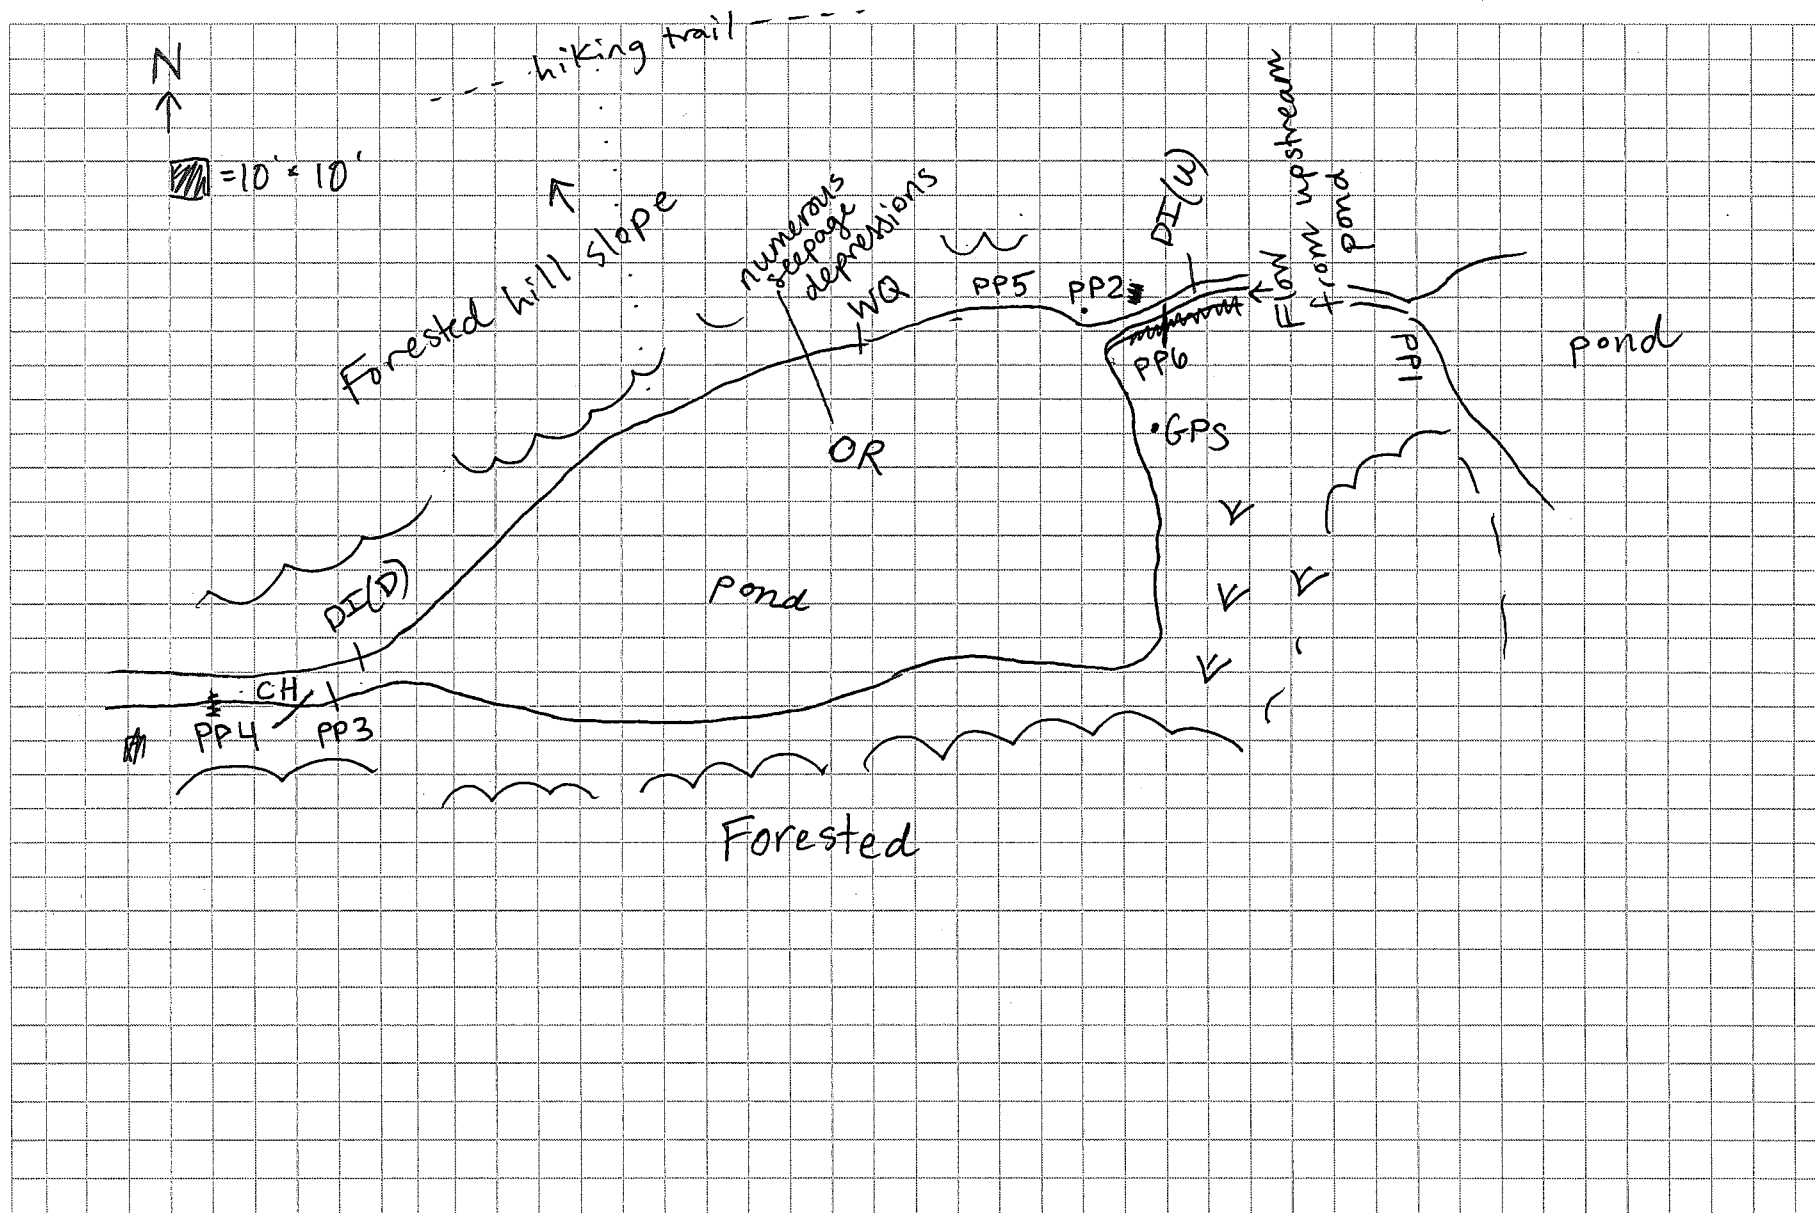 --- hiking trail ----
N
= 10' × 10'
Forested hill slope
numerous
seepage
depressions
WQ
PP5
PP2
DI(U)
Flow
from upstream
pond
PP6
PP1
pond
GPS
OR
DI(D)
pond
CH
PP4
PP3
Forested